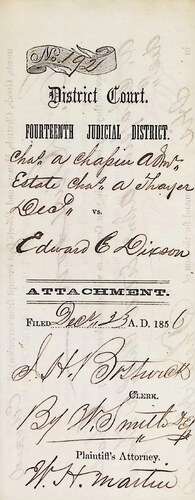 No. 1921
District Court.
FOURTEENTH JUDICIAL DISTRICT.
Chas. A Chapin Admr.
Estate Chas. A Thayer
Decd. vs.
Edward C Dixson
ATTACHMENT.
FILED Dec. 23 A. D. 1856
J. H. Bostwick
CLERK.
By W. Smith Dy
Plaintiff's Attorney.
W. H. Martin